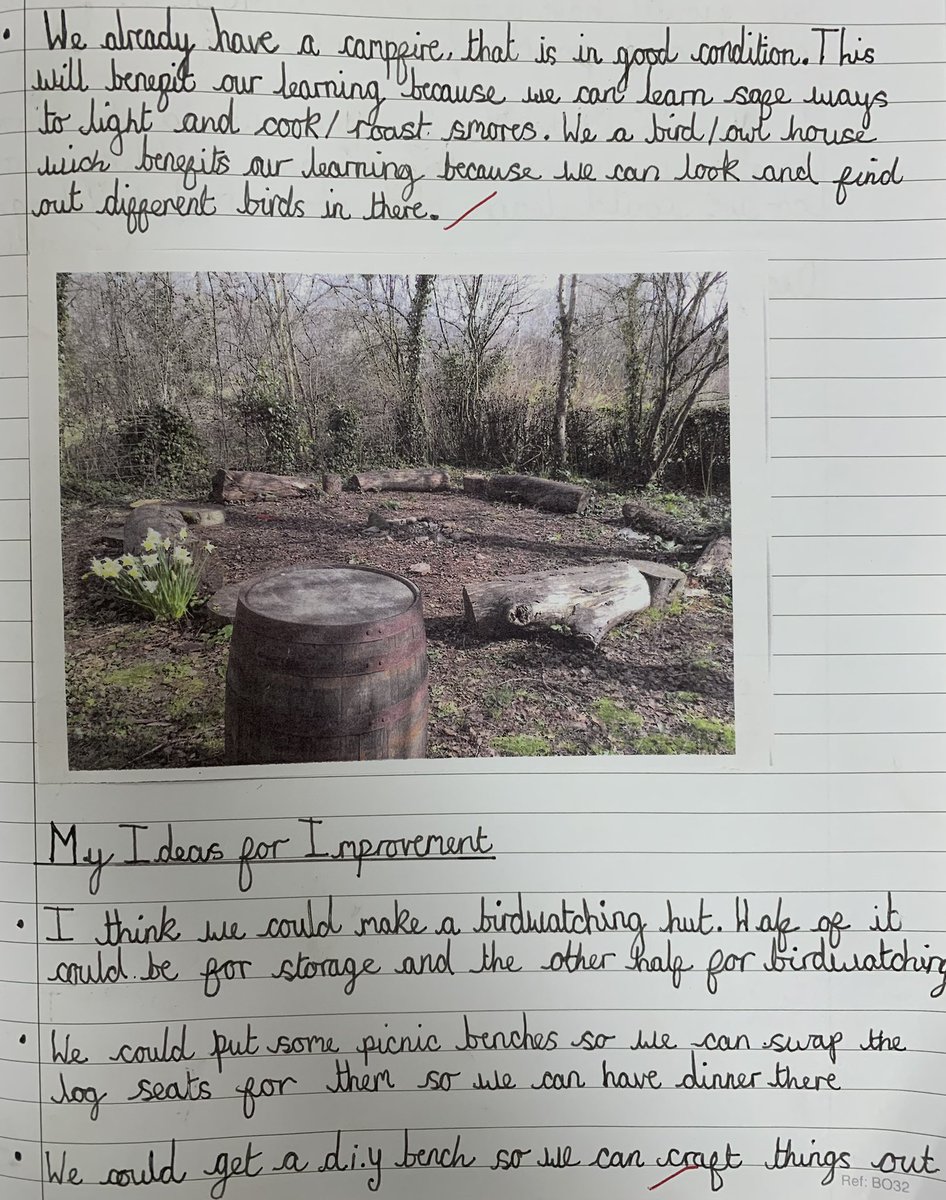 • We already have a campfire, that is in good condition. This
will benefit our learning because we can learn safe ways
to light and cook/roast smores. We a bird/owl house
wich benefits our learning because we can look and find
out different birds in there.
My Ideas for Improvement
• I think we could make a birdwatching hut. Half of it
could be for storage and the other half for birdwatching
• We could put some picnic benches so we can swap the
log seats for them so we can have dinner there
• We could get a d.i.y bench so we can craft things out
Ref: BO32